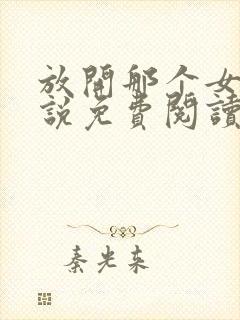 放開那个女
說免費閱讀
秦光东